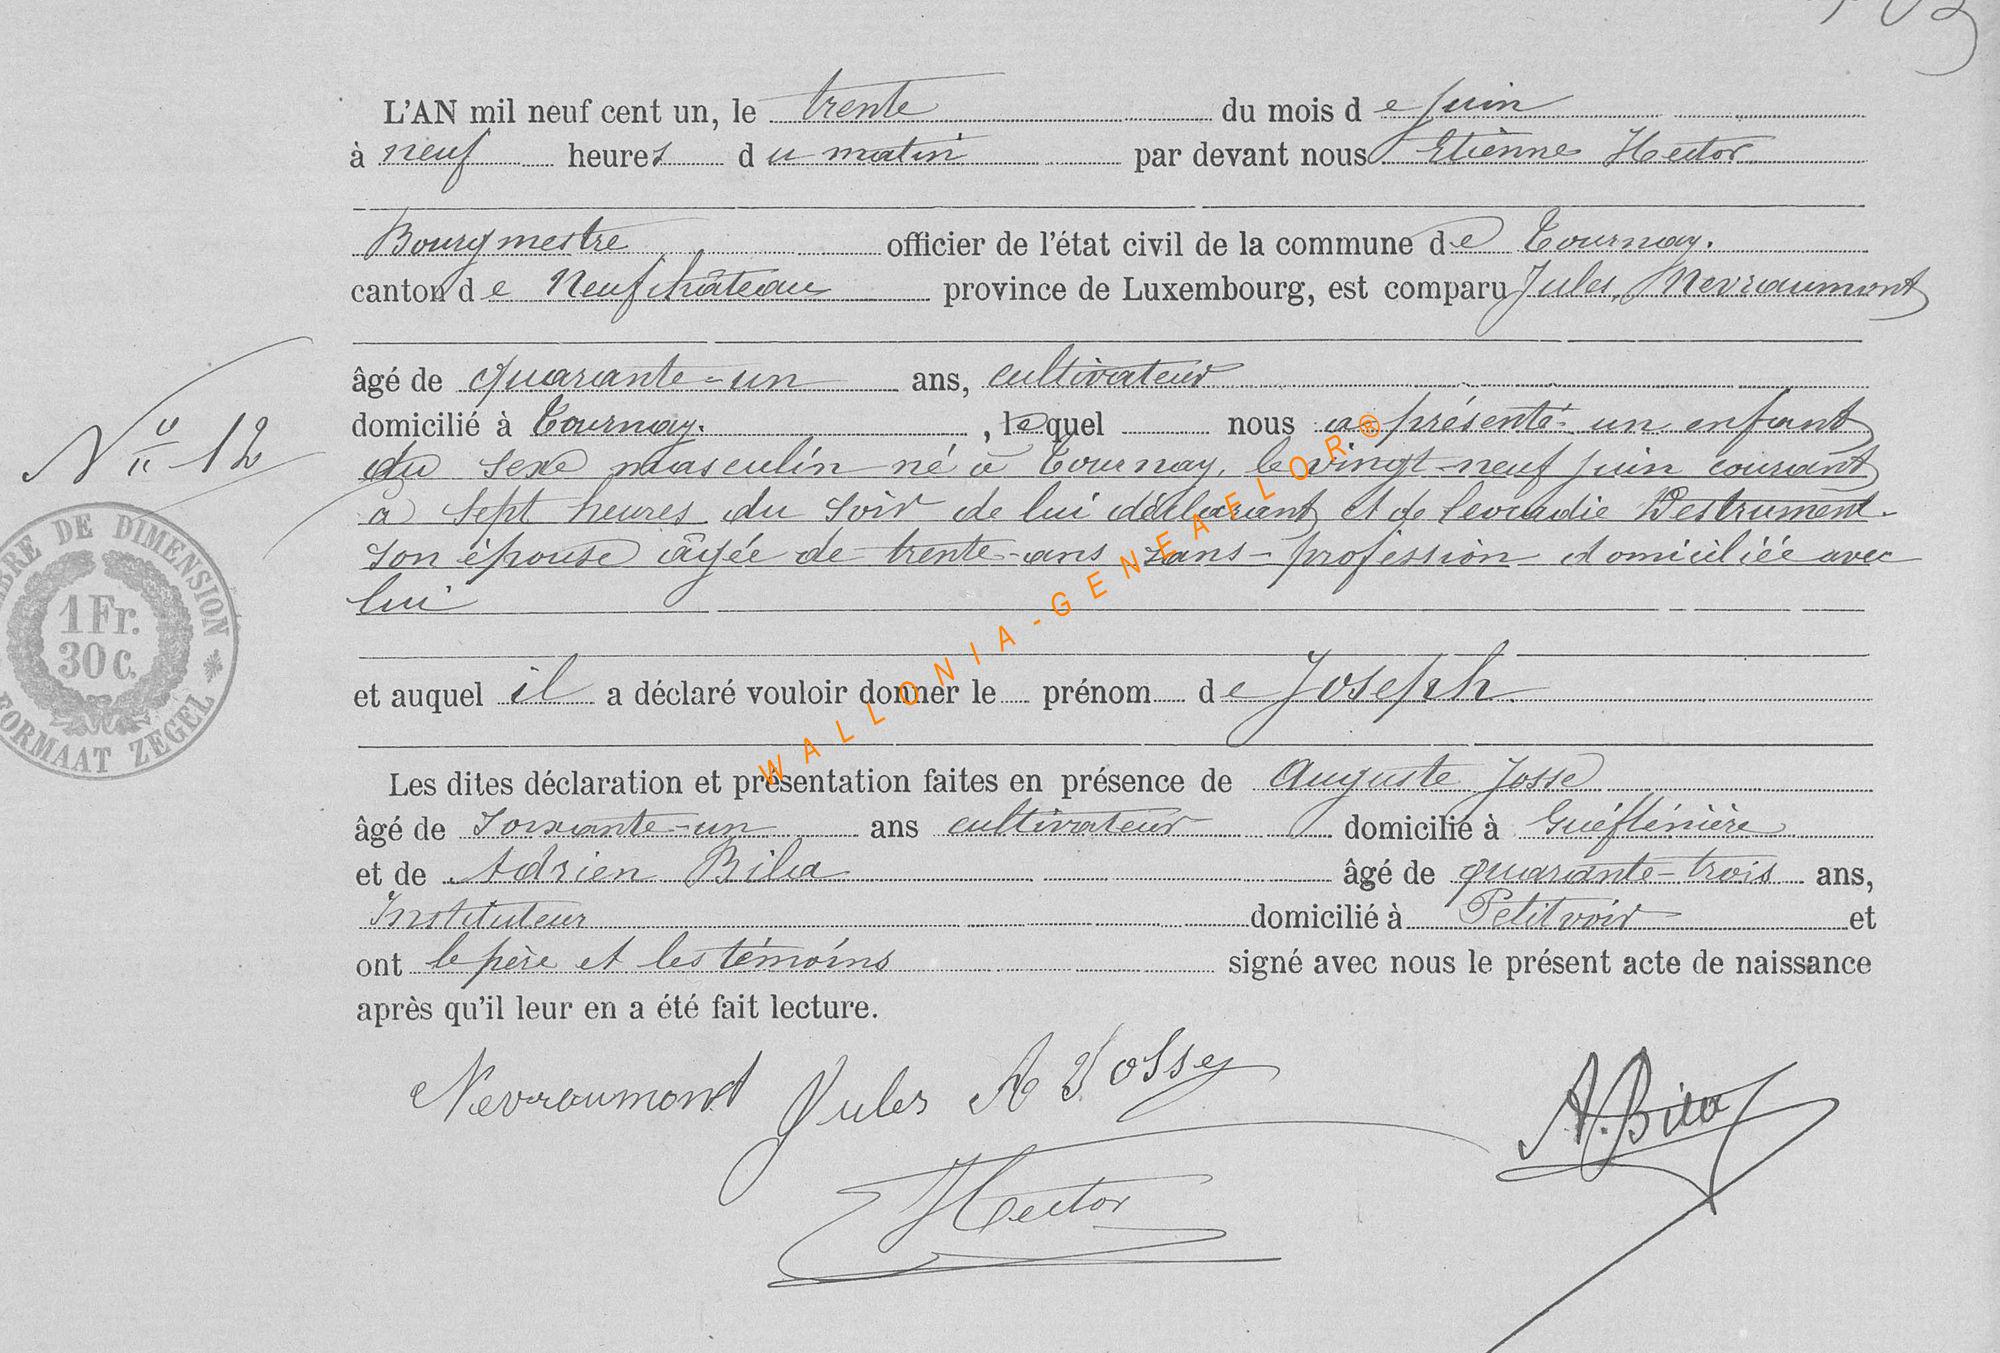 L'AN mil neuf cent un, le trente du mois de juin
à neuf heures du matin par devant nous Etienne Hector
Bourgmestre officier de l'état civil de la commune de Tournay.
canton de Neufchâteau province de Luxembourg, est comparu Jules Nevraumont
âgé de quarante-un ans, cultivateur
domicilié à Tournay. , lequel nous a présenté un enfant
N° 12
du sexe masculin né à Tournay, le vingt-neuf juin courant
à sept heures du soir de lui déclarant et de Léocadie Destrument
son épouse âgée de trente-ans sans-profession domiciliée avec
lui
TIMBRE DE DIMENSION
1 Fr.
30 c.
FORMAAT ZEGEL
et auquel il a déclaré vouloir donner le prénom de Joseph.
WALLONIA-GENEAFLOR®
Les dites déclaration et présentation faites en présence de Auguste Josse
âgé de Soixante-un ans cultivateur domicilié à
et de Adrien Bila âgé de quarante-trois ans,
Instituteur domicilié à Petitvoir et
ont le père et les témoins signé avec nous le présent acte de naissance
après qu'il leur en a été fait lecture.
Nevraumont Jules A Josse
A. Bila
Hector